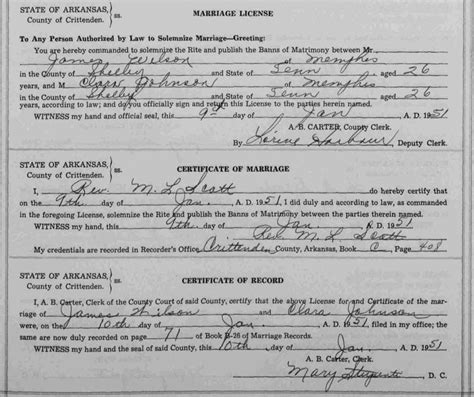 STATE OF ARKANSAS, County of Crittenden. ss. MARRIAGE LICENSE
To Any Person Authorized by Law to Solemnize Marriage—Greeting:
You are hereby commanded to solemnize the Rite and publish the Banns of Matrimony between Mr.
James Wilson of Memphis
in the County of Shelby and State of Tenn aged 26
years, and M Clara Johnson of Memphis
in the County of Shelby and State of Tenn aged 26
years, according to law; and do you officially sign and return this License to the parties herein named.
WITNESS my hand and official seal, this 9th day of Jan A. D. 1951
A. B. CARTER, County Clerk.
By Deputy Clerk.
STATE OF ARKANSAS, County of Crittenden. ss. CERTIFICATE OF MARRIAGE
I, Rev. M. L. Scott do hereby certify that
on the 9th day of Jan. A. D. 1951, I did duly and according to law, as commanded
in the foregoing License, solemnize the Rite and publish the Banns of Matrimony between the parties therein named.
WITNESS my hand this 9th day of Jan. 1951
Rev. M. L. Scott
My credentials are recorded in Recorder's Office, Crittenden County, Arkansas, Book C, Page 408
STATE OF ARKANSAS, County of Crittenden. ss. CERTIFICATE OF RECORD
I, A. B. Carter, Clerk of the County Court of said County, certify that the above License for and Certificate of the mar-
riage of James Wilson and Clara Johnson
were, on the 10th day of Jan. A. D. 1951, filed in my office; the
same are now duly recorded on page 71 of Book B-26 of Marriage Records.
WITNESS my hand and the seal of said County, this 10th day of Jan. A. D. 1951
A. B. Carter, Clerk.
Mary D. C.